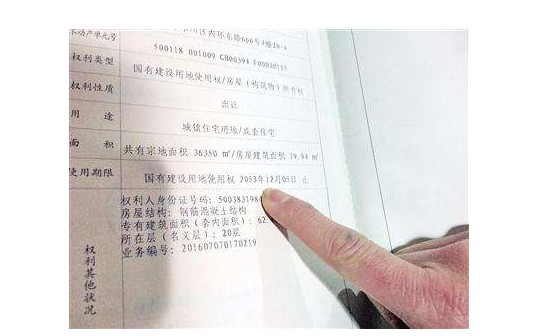 不动产单元号
区内环东路666号4幢20-4
500118 001009 GB00394 F00030135
权利类型
国有建设用地使用权/房屋（构筑物）所有权
权利性质
出让
用 途
城镇住宅用地/成套住宅
面 积
共有宗地面积 36350 ㎡/房屋建筑面积 79.94 ㎡
使用期限
国有建设用地使用权 2053年12月05日 止
权利其他状况
权利人身份证号码：500383198
房屋结构：钢筋混凝土结构
专有建筑面积（套内面积）：62.
所在层（名义层）：20层
业务编号：201607070170219